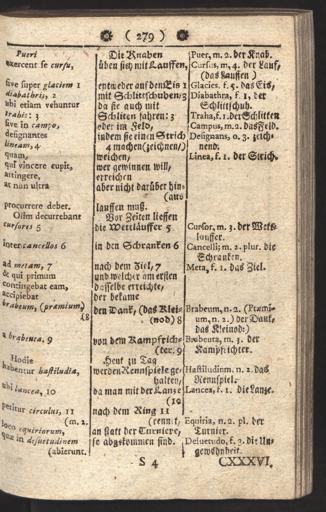 ( 279 )
Pueri
exercent se cursu,
sive super glaciem 1
diabathris, 2
ubi etiam vehuntur
trahis: 3
sive in campo,
designantes
lineam, 4
quam,
qui vincere cupit,
attingere,
at non ultra
procurrere debet.
Olim decurrebant
cursores 5
inter cancellos 6
ad metam, 7
& qui primum
contingebat eam,
accipiebat
brabeum, (præmium)
8
a brabeuta, 9
Hodie
habentur hastiludia,
ubi lancea, 10
petitur circulus, 11
(m. 2.
loco equiriorum,
quæ in desuetudinem
(abierunt.
Die Knaben
üben sich mit Lauffen,
entweder auf dem Eis 1
mit Schlittschuhen 2
da sie auch mit
Schlitten fahren: 3
oder im Feld,
indem sie einen Strich
4 machen (zeichnen/)
welchen,
wer gewinnen will,
erreichen
aber nicht darüber hin-
(aus
lauffen muß.
Vor Zeiten lieffen
die Wettläuffer 5
in den Schranken 6
nach dem Ziel, 7
und welcher am ersten
dasselbe erreichte,
der bekame
den Dank, (das Klei-
(nod) 8
von dem Kampfrich-
(ter. 9
Heut zu Tag
werden Rennspiele ge-
halten,
da man mit der Lanze
(10
nach dem Ring 11
(rennet,
an statt der Turniere,
so abgekommen sind.
Puer, m. 2. der Knab.
Cursus, m. 4. der Lauf,
(das Lauffen)
Glacies, f. 5. das Eis,
Diabathra, f. 1, der
Schlittschuh.
Traha, f. 1. der Schlitten
Campus, m. 2. das Feld.
Designans, o. 3. zeich-
nend.
Linea, f. 1. der Strich.
Cursor, m. 3. der Wett-
lauffer.
Cancelli, m. 2. plur. die
Schranken.
Meta, f. 1. das Ziel.
Brabeum, n. 2. (Præmi-
um, n. 2.) der Dank,
das Kleinod:)
Brabeuta, m. 1. der
Kampfrichter.
Hastiludium, n. 2. das
Rennspiel.
Lancea, f. 1. die Lanze.
Equiria, n. 2. pl. der
Turnier.
Desuetudo, f. 3. die Un-
gewohnheit.
S 4
CXXXVI.